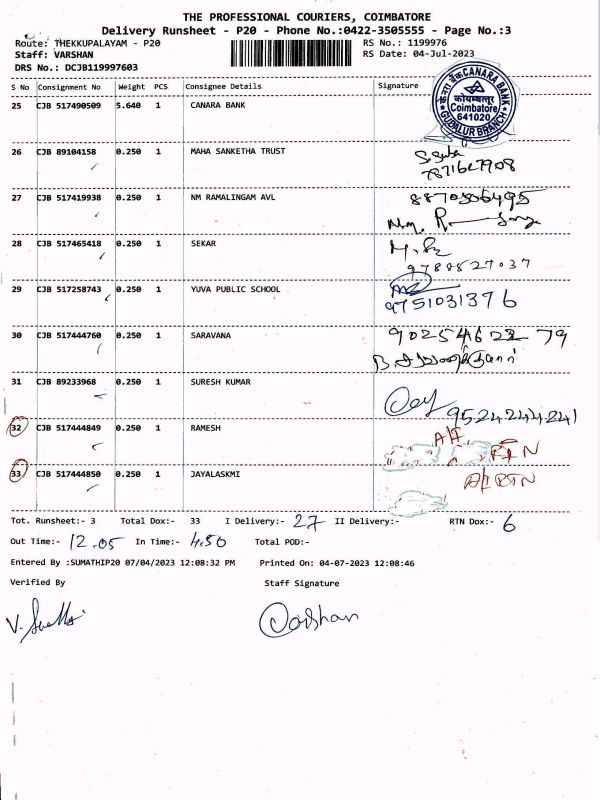 THE PROFESSIONAL COURIERS, COIMBATORE
Delivery Runsheet - P20 - Phone No.:0422-3505555 - Page No.:3
Route: THEKKUPALAYAM - P20
RS No.: 1199976
Staff: VARSHAN
RS Date: 04-Jul-2023
DRS No.: DCJB119997603
S No Consignment No Weight PCS Consignee Details Signature
25 CJB 517490509 5.640 1 CANARA BANK
CANARA BANK
कोयम्बत्तूर
Coimbatore
641020
GUDALUR BRANCH
26 CJB 89104158 0.250 1 MAHA SANKETHA TRUST
27 CJB 517419938 0.250 1 NM RAMALINGAM AVL 8870506495
28 CJB 517465418 0.250 1 SEKAR
9788527037
29 CJB 517258743 0.250 1 YUVA PUBLIC SCHOOL
9751031376
30 CJB 517444760 0.250 1 SARAVANA
31 CJB 89233968 0.250 1 SURESH KUMAR
9524244241
32 CJB 517444849 0.250 1 RAMESH
RTN
33 CJB 517444850 0.250 1 JAYALASKMI
RTN
Tot. Runsheet:- 3 Total Dox:- 33 I Delivery:- 27 II Delivery:- RTN Dox:- 6
Out Time:- 12.05 In Time:- 4.50 Total POD:-
Entered By :SUMATHIP20 07/04/2023 12:08:32 PM Printed On: 04-07-2023 12:08:46
Verified By Staff Signature
Varshan